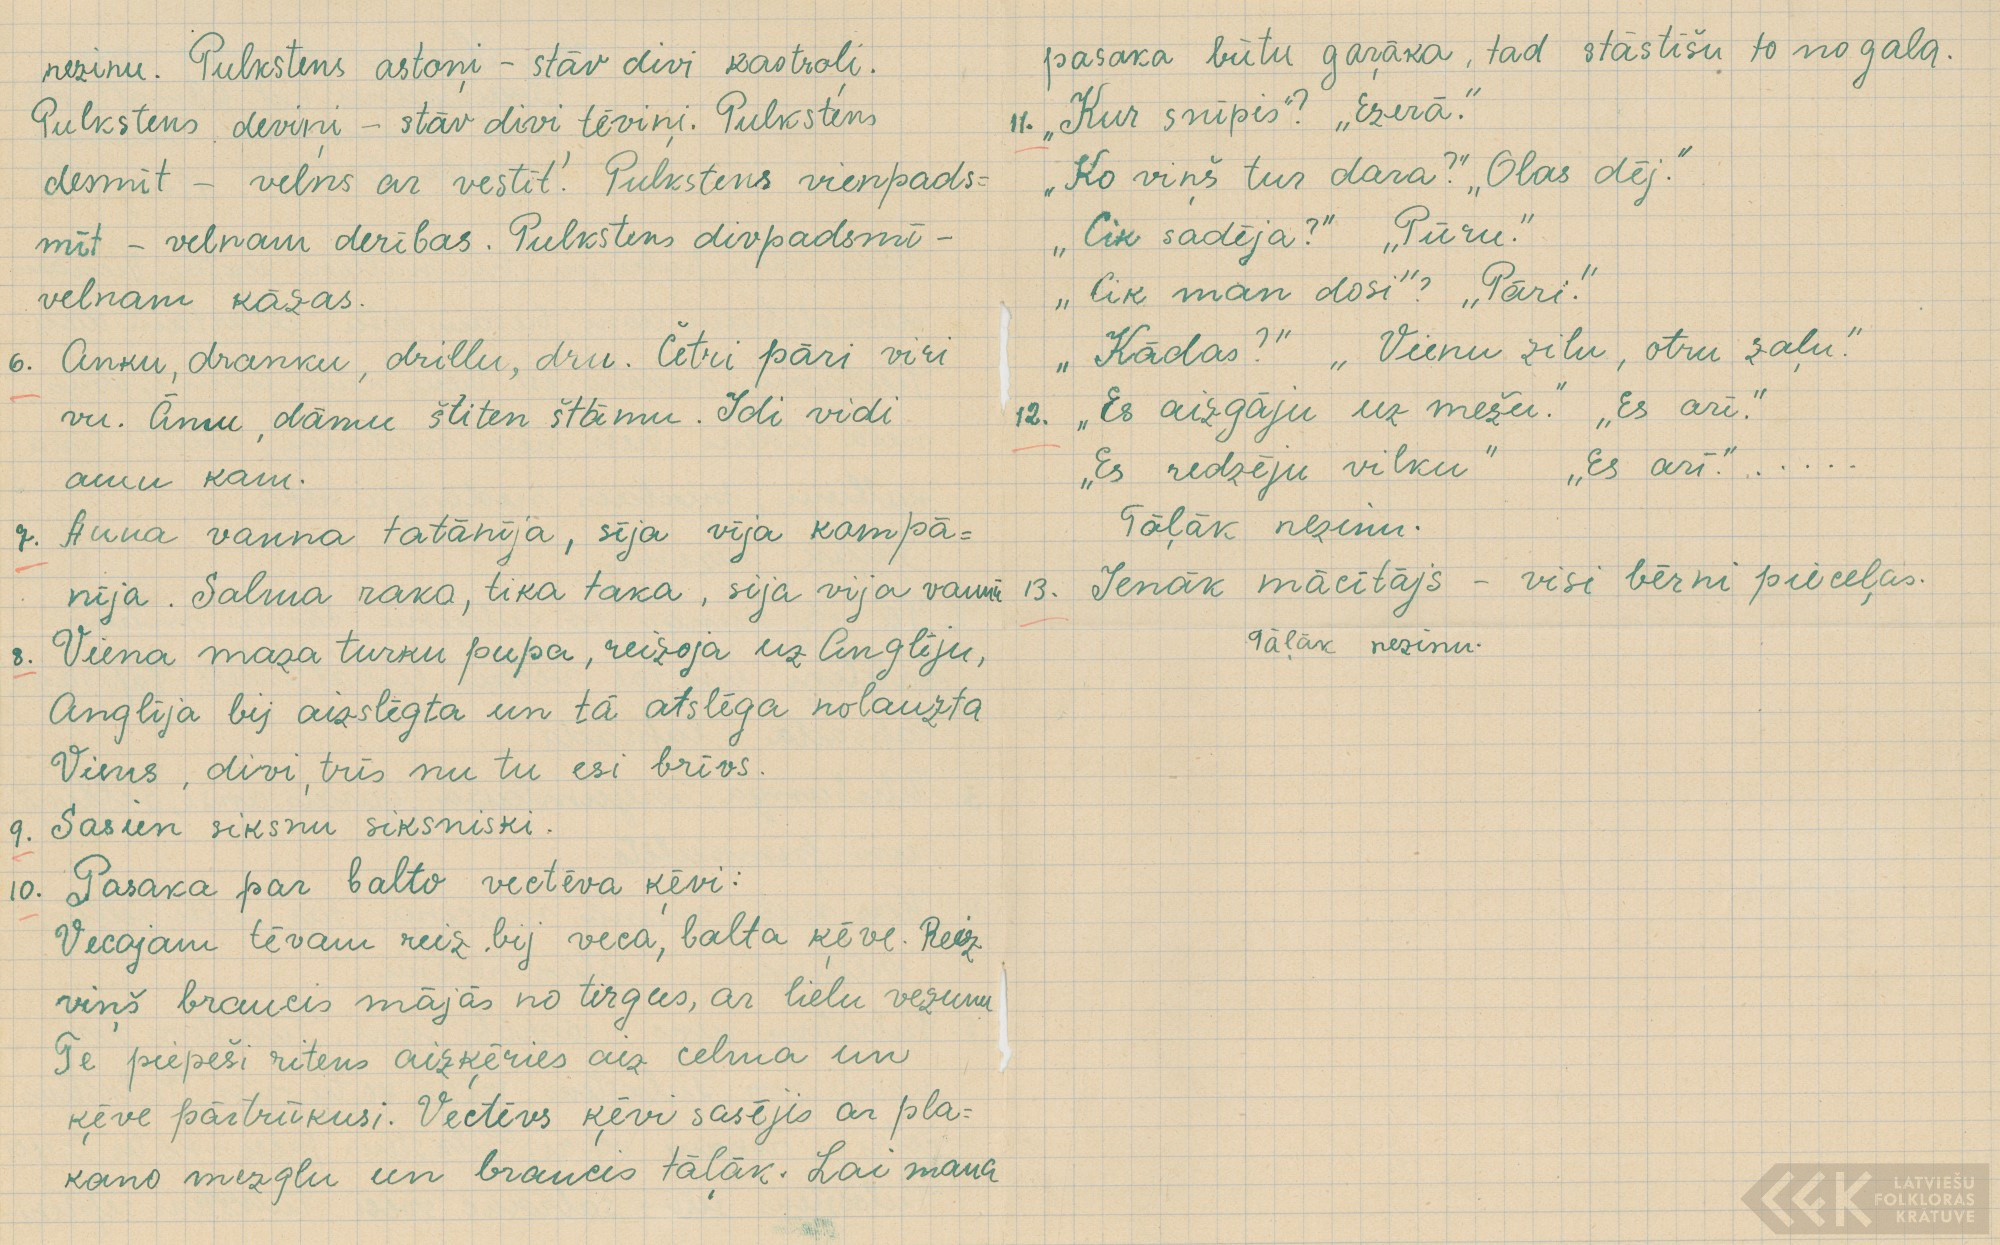 nezinu. Pulkstens astoņi – stāv divi kastroļi.
Pulkstens deviņi – stāv divi tēviņi. Pulkstens
desmit – velns ar vestīt! Pulkstens vienpads=
mit – velnam derības. Pulkstens divpadsmi –
velnam kāzas.
6. Anku, dranku, drillu, dru. Četri pāri viri
vu. Āmu, dāmu štiten štāmu. Idi vidi
amu kam.
7. Anna vanna tatānīja, sīja vīja kompā=
nīja. Salma raka, tika taka, sija vija vannā
8. Viena maza turku pupa, reižoja uz Angliju,
Anglija bij aizslēgta un tā atslēga nolauzta
Viens, divi, trīs nu tu esi brīvs.
9. Sasien siksnu siksniski.
10. Pasaka par balto vectēva ķēvi:
Vecajam tēvam reiz bij veca, balta ķēve. Reiz
viņš braucis mājās no tirgus, ar lielu vezumu
Te piepeši ritens aizķēries aiz celma un
ķēve pārtrūkusi. Vectēvs ķēvi sasējis ar pla=
kano mezglu un braucis tāļāk. Lai mana
pasaka būtu gaŗāka, tad stāstīšu to no gala.
11. „Kur snīpis"? „Ezerā."
„Ko viņš tur dara?" „Olas dēj."
„Cik sadēja?" „Pūru."
„Cik man dosi"? „Pāri."
„Kādas?" „Vienu zilu, otru zaļu."
12. „Es aizgāju uz mežu." „Es arī."
„Es redzēju vilku" „Es arī." . . . . .
Tāļāk nezinu.
13. Ienāk mācītājs – visi bērni pieceļas.
Tāļāk nezinu.
LATVIEŠU
FOLKLORAS
KRĀTUVE